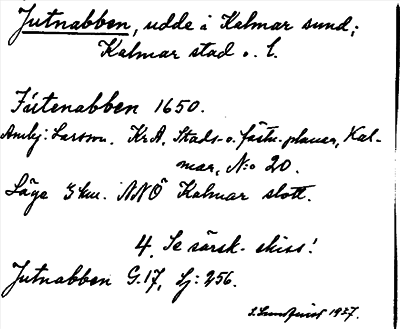 Jutnabben, udde i Kalmar sund;
Kalmar stad o. l.
Jútenabben 1650.
Ambj: Larsson. Kr A. Stads- o. fästn. planer, Kal-
mar, N:o 20.
Läge 3 km. NNÖ Kalmar slott.
4. Se särsk. skiss!
Jutnabben G. 17, Lj: 256.
1927.